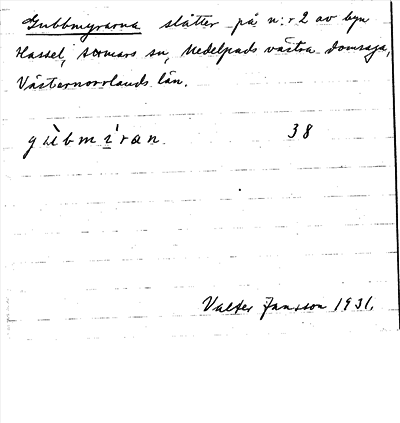 Gubbmyrarna slåtter på n:r 2 av byn
Hassel, Stermars sn, Medelpads västra domsaga,
Västernorrlands län.
gùbmíran. 38
Valter Jansson 1931.